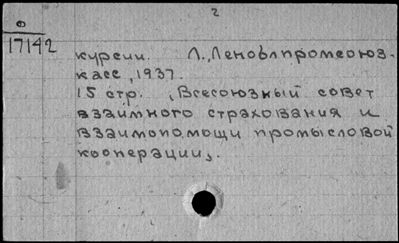 2
о
17142
курсии. Л., Леноблпромсоюз-
касс, 1937.
15 стр. (Всесоюзный совет
взаимного страхования и
взаимопомощи промысловой
кооперации).